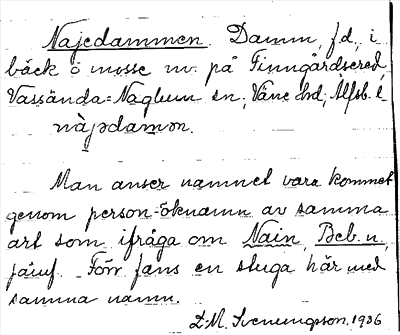 Najedammen. Damm, f.d., i
bäck o mosse nv. på Finngårdsered,
Vassända-Naglum sn, Väne hd, Älfsb. l.
nàjədamən.
Man anser namnet vara kommet
genom person-öknamn av samma
art som ifråga om Nain, Beb. n,
jämf. Förr fans en stuga här med
samma namn.
L.M. Svenungsson. 1936